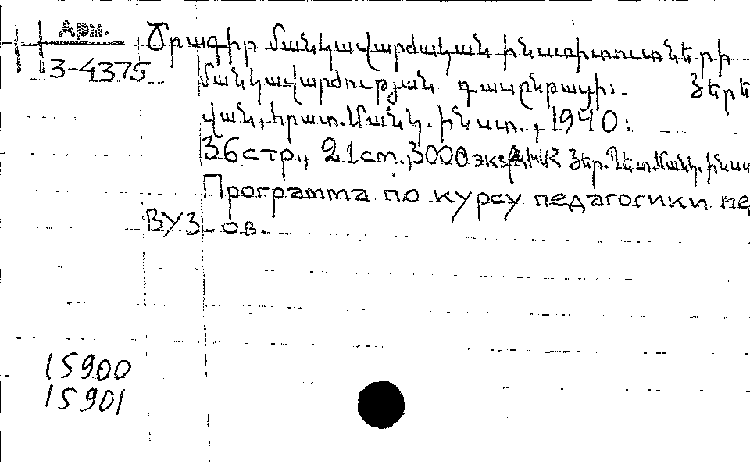 Арм.
3-4375
Ծրագիր մանկավարժական ինստիտուտների
մանկավարժության դասընթացի: Երե
վան, հրատ. Մանկ. ինստ., 1940:
36 стр., 21 см., 3000 экз. Հայկ. ՍՍՀ Եր. Պետ. Մանկ. ինստ
Программа по курсу педагогики пе
ВУЗ-ов.
15900
15901